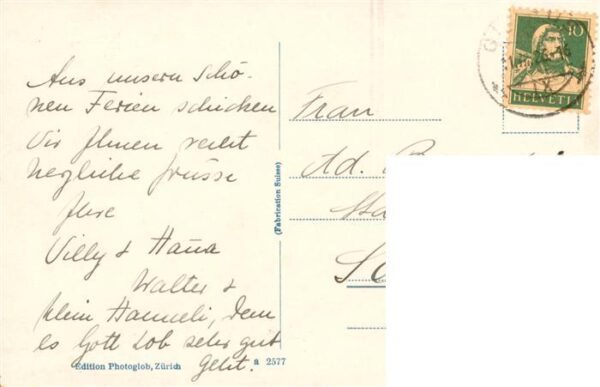 Aus unsern Schö-
nen Ferien schicken
Wir Ihnen recht
herzliche Grüsse
Ihre
Willy & Hanna
Walter &
klein Hanneli, dem
es Gott Lob sehr gut
Geht.
Edition Photoglob, Zürich
a 2577
(Fabrication Suisse)
Frau
Ad.
10
HELVETIA